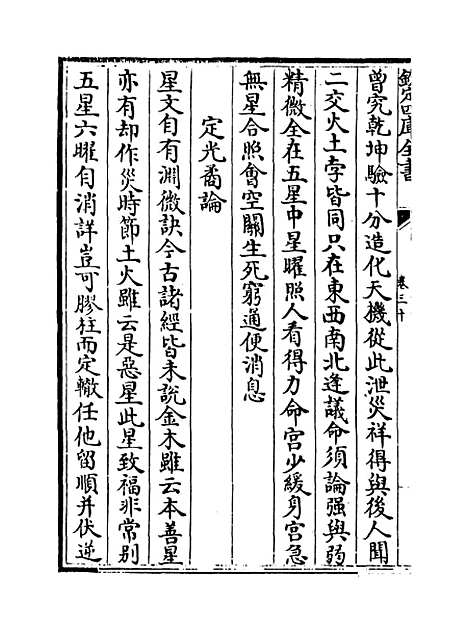 欽定四庫全書
卷三十
曾究乾坤驗十分造化天機從此泄災祥得與後人聞
二交火土孛皆同只在東西南北逢議命須論强與弱
精微全在五星中星曜照人看得力命宫少緩身宫急
無星合照會空關生死窮通便消息
定光喬論
星文自有淵微訣今古諸經皆未説金木雖云本善星
亦有却作災時節土火雖云是惡星此星致福非常别
五星六曜自消詳豈可膠柱而定轍任他留順并伏逆